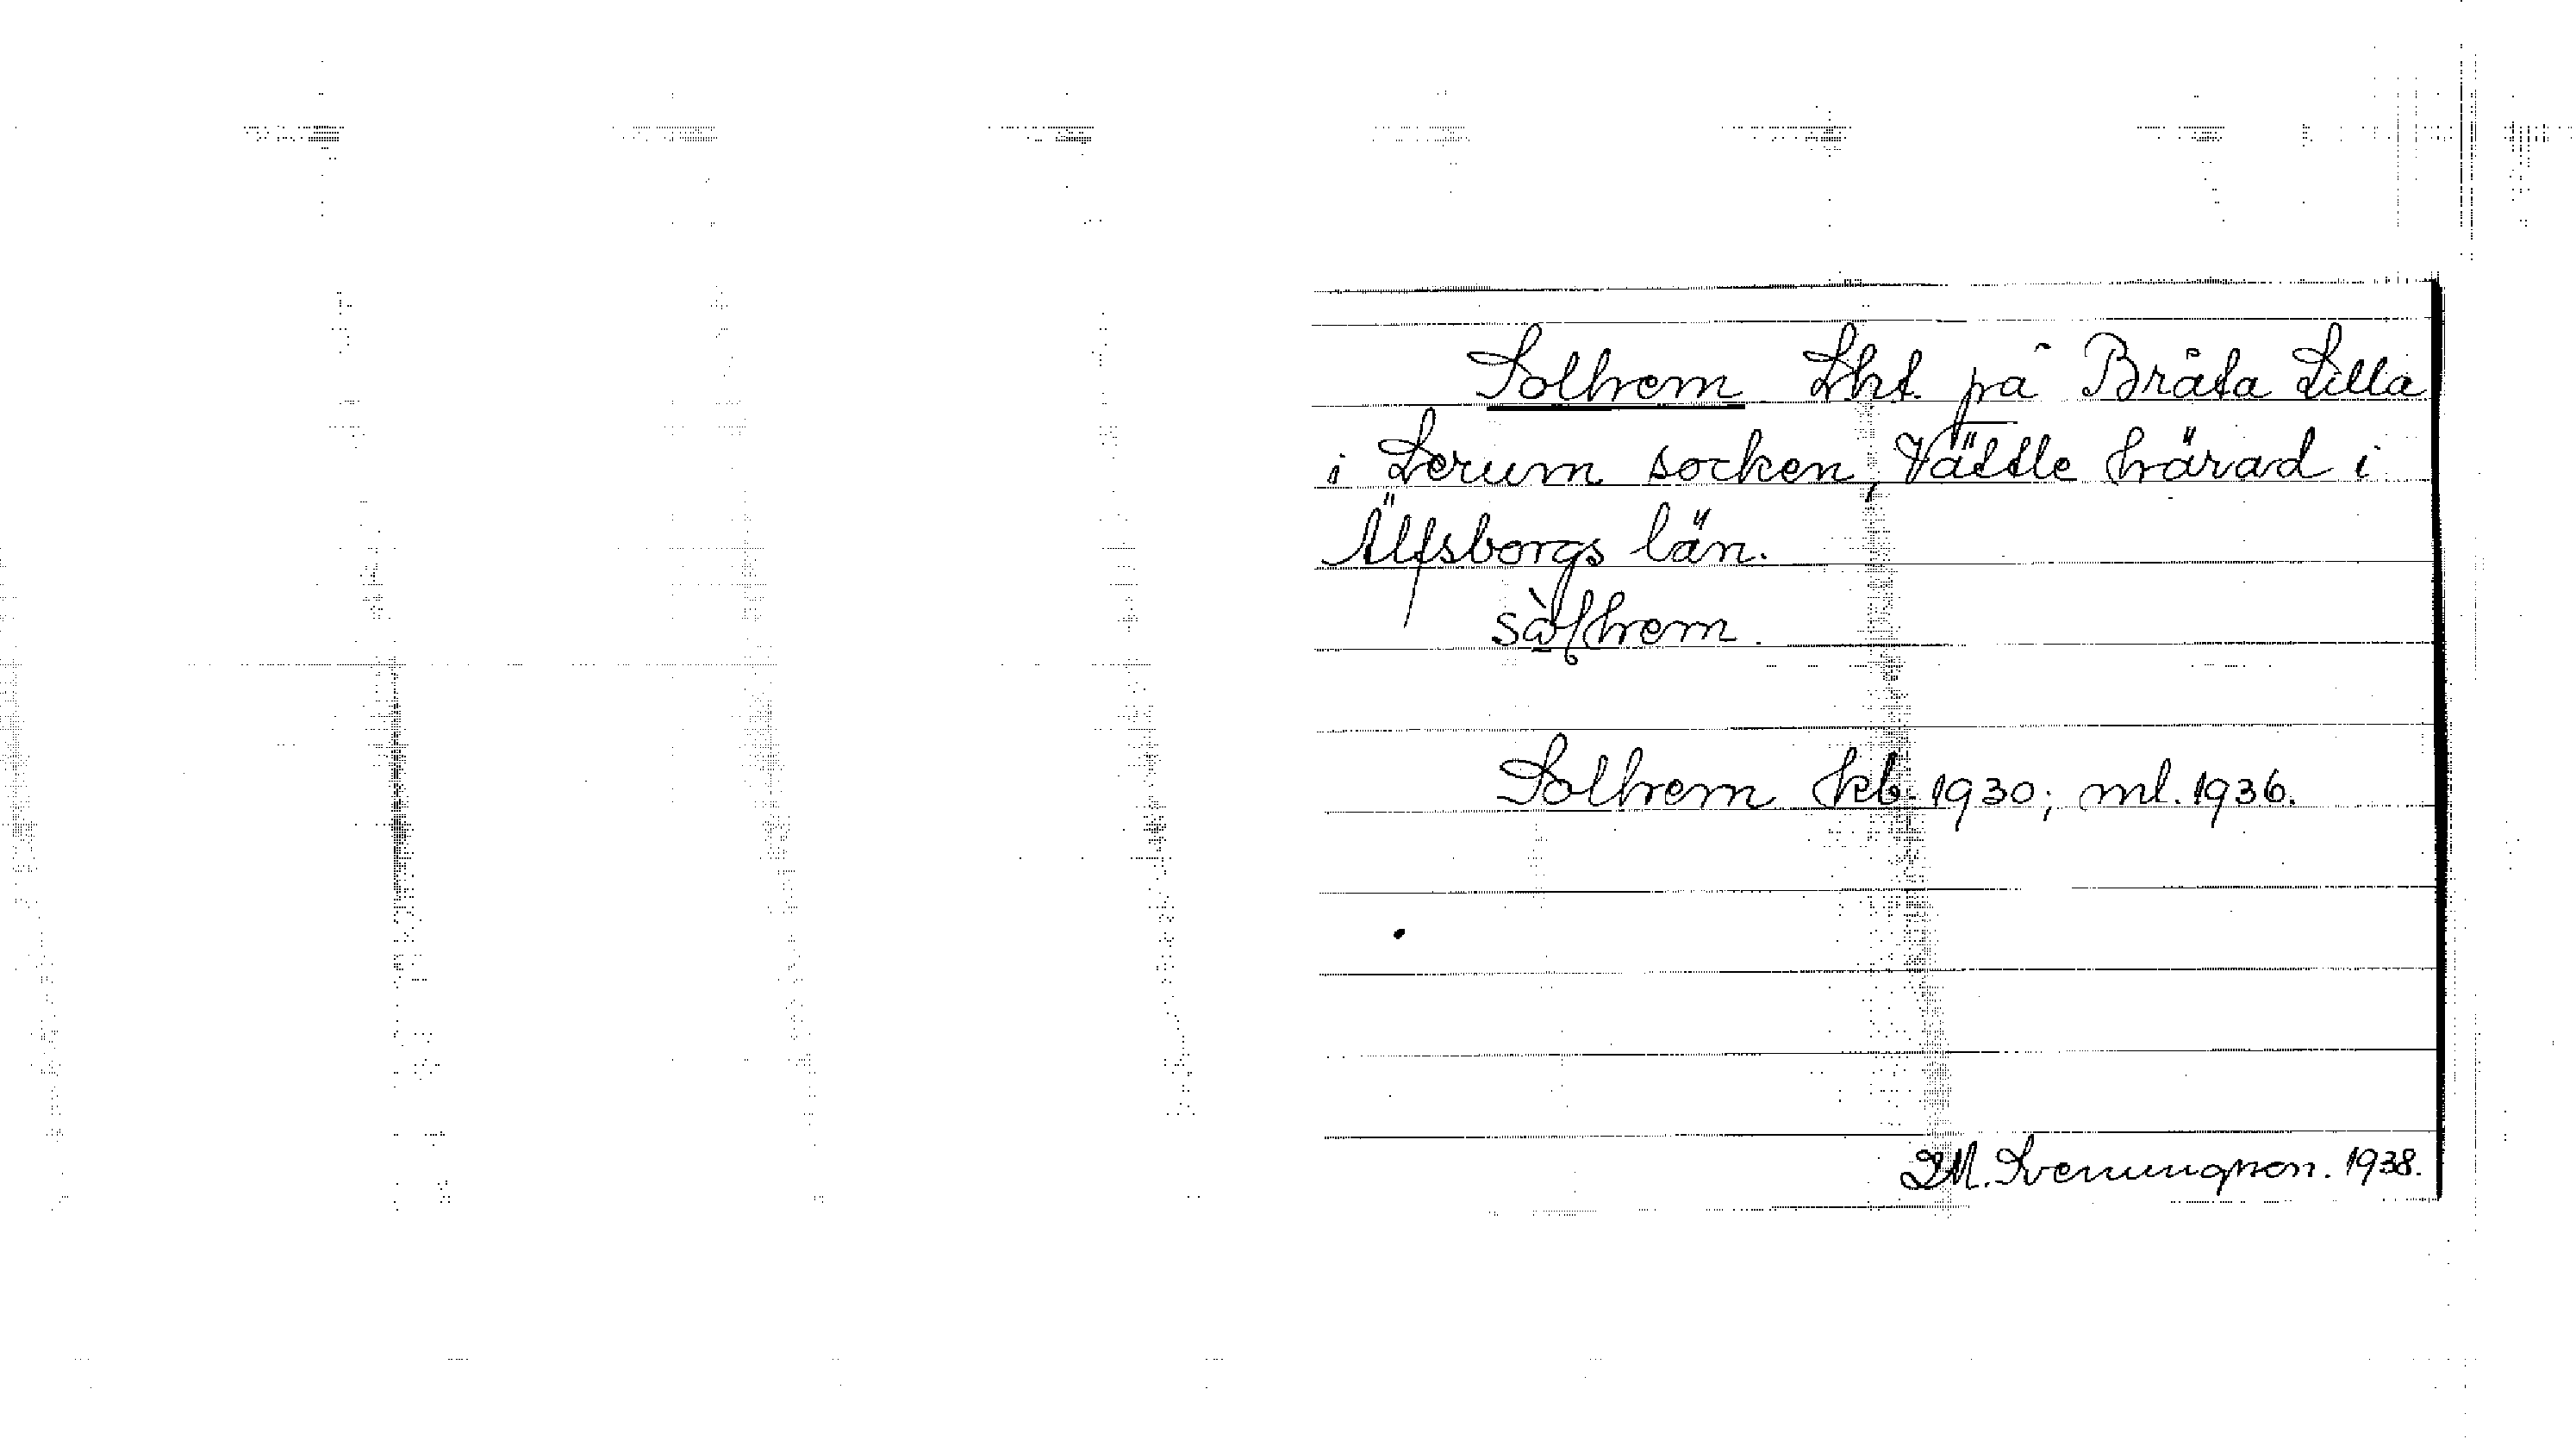 Solhem. Lht. på Bråta Lilla
i Lerum socken, Vättle härad i
Älfsborgs län.
sòlhem.
Solhem kb. 1930; ml. 1936.
D.M. Svenungson. 1938.